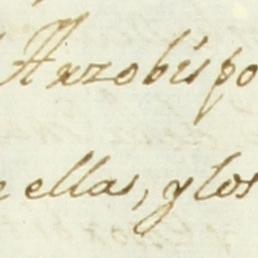 Arzobispo
e ellas, y los